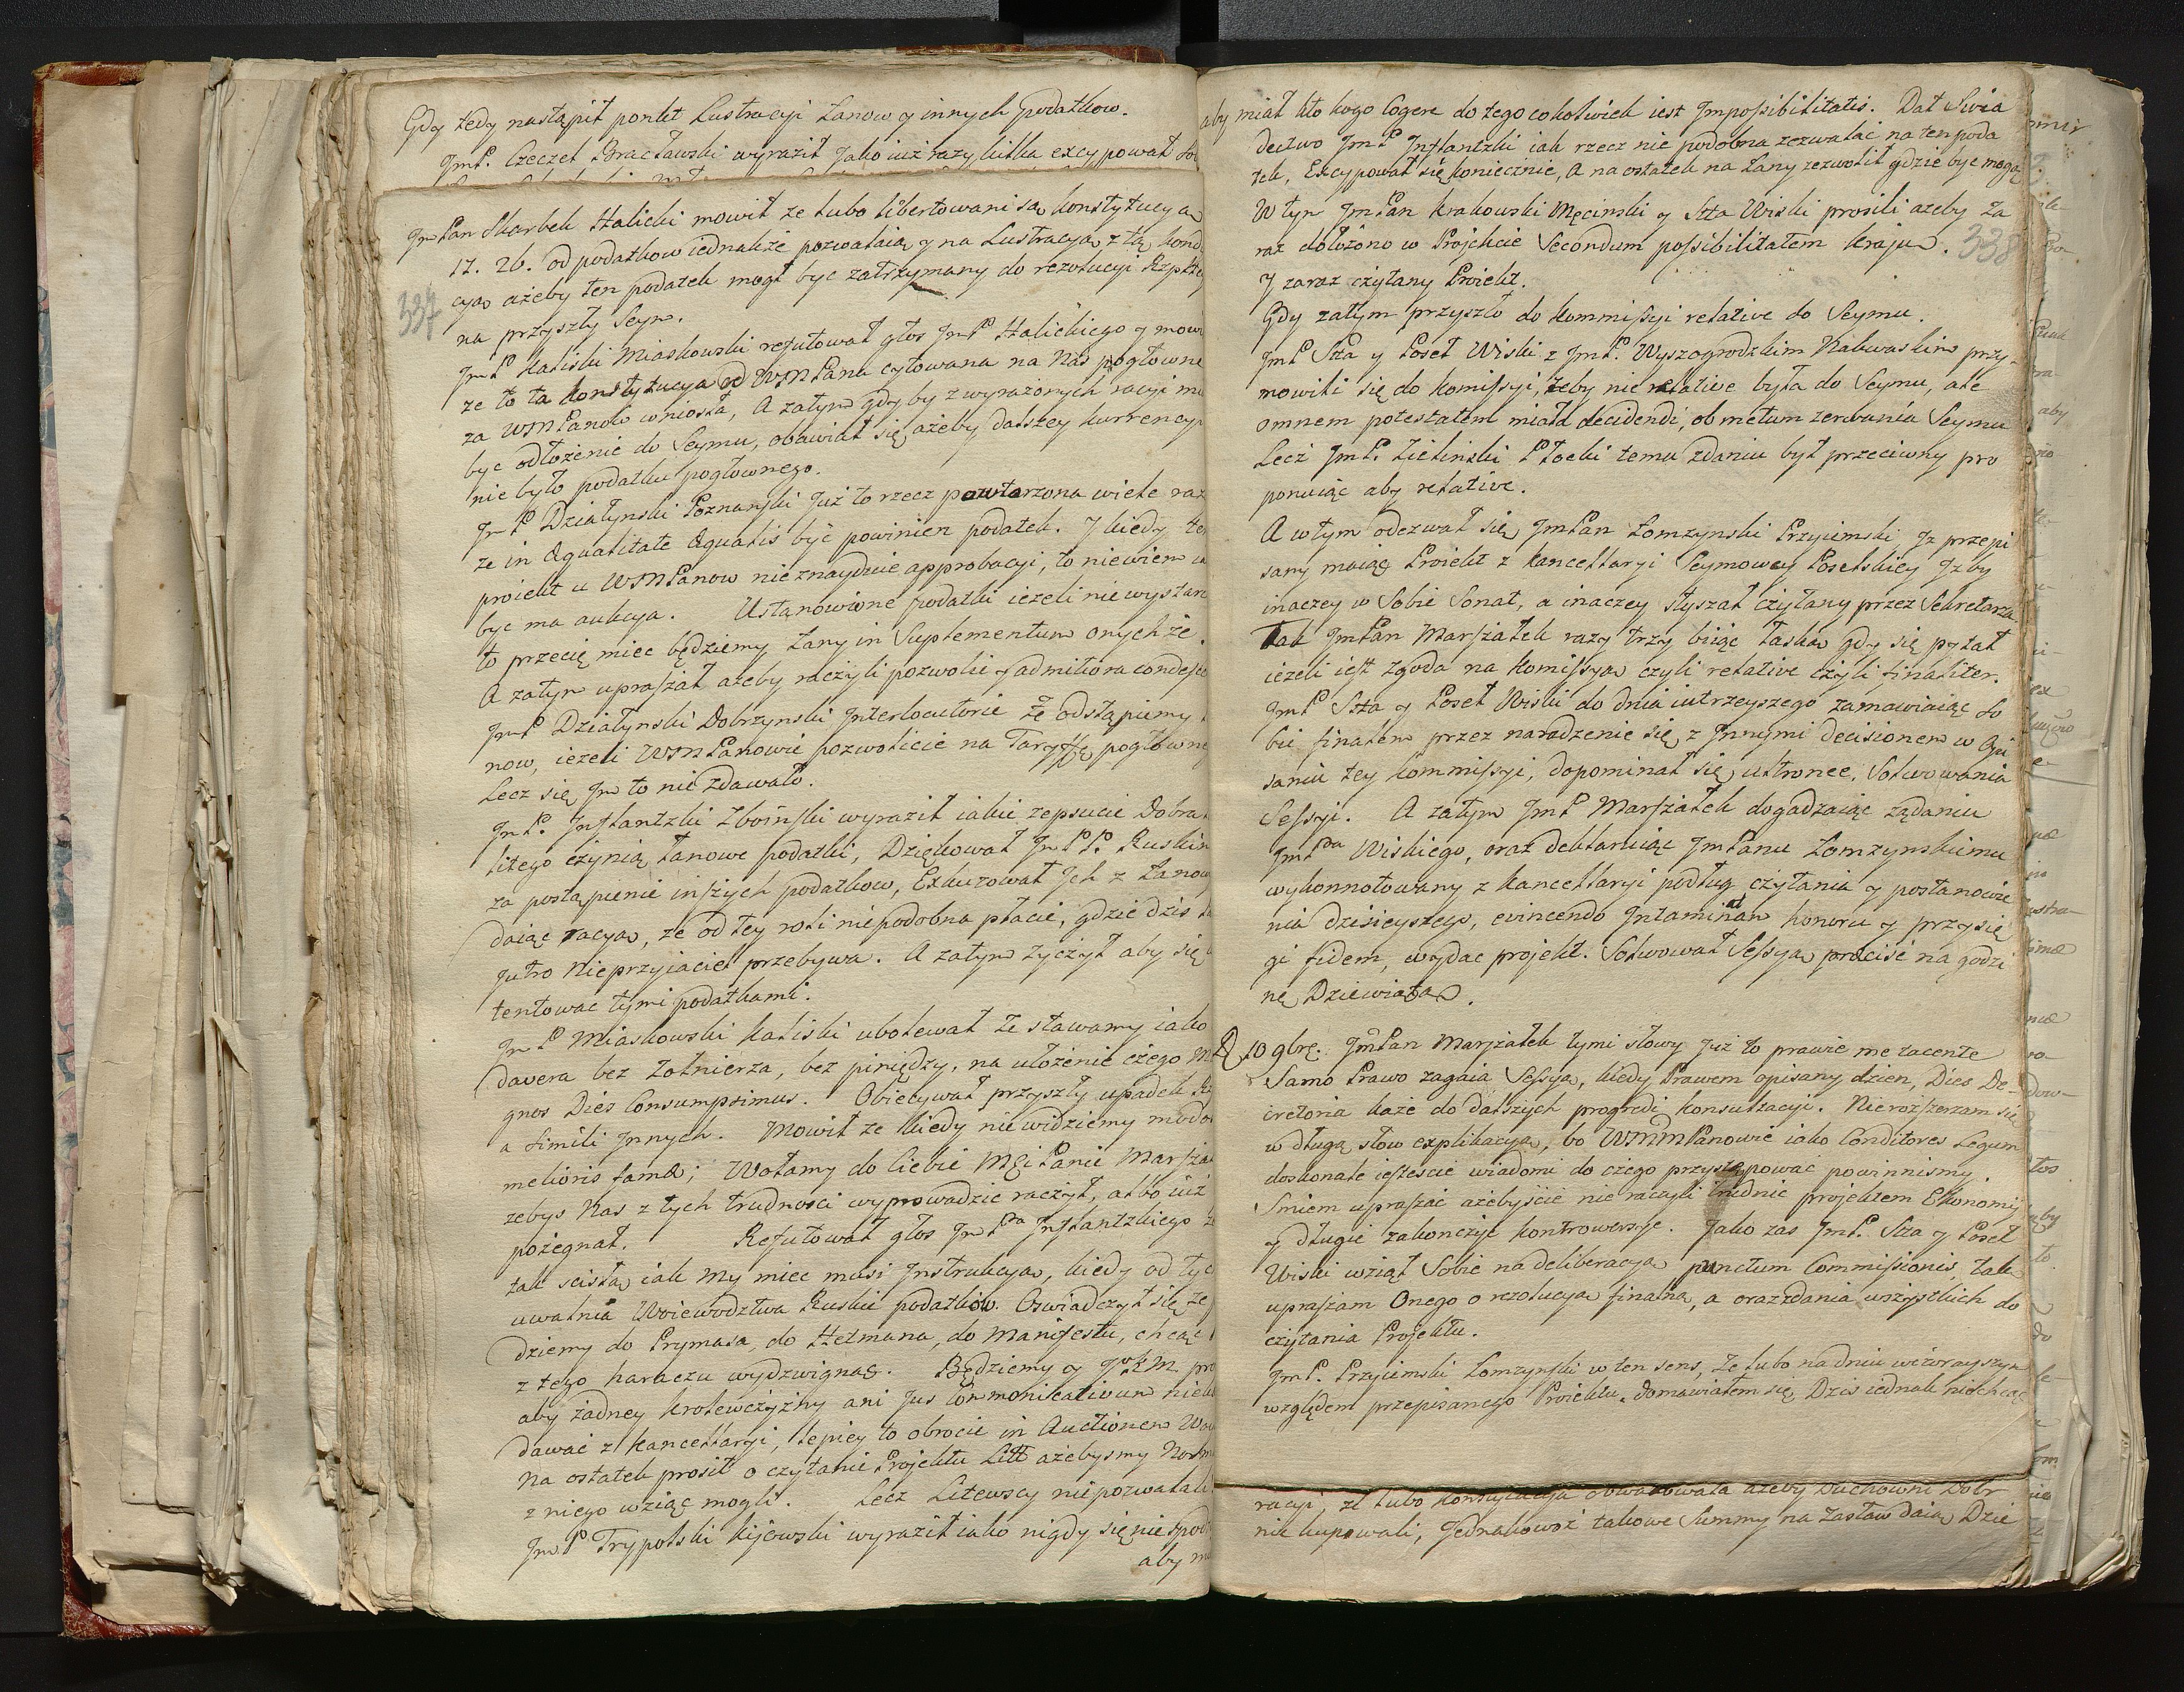 Gdy tedy nastąpił ponkt Lustracyi Łanow y innych podatkow.
JmP. Czeczel Bracławski wyraził jako iuż razy kilka excypował
JmPan Skarbek Halicki mowił że lubo libertowani są konstytucyą
17.26. od podatkow iednakże pozwalaią y na Lustracyą z tą kond
cyą ażeby ten podatek mogł byc zatrzymany do rezolucyi Rzpltey
na przyszły Seym.
337
JmP Kaliski Miaskowski refutował głos JmP Halickiego y mowi
ze to ta konstytucya od WMPana cytowana na Nas pogłowne
za WMPanow wniosła, A zatym gdyby z wyrażonych racyi mi
byc odłożenie do Seymu, obawiał się ażeby dalszey kurrencyi
nie było podatku pogłownego.
JmP Działynski Poznanski Już to rzecz powtarzona wiele raz
ze in Æqualitate Æqualis być powinien podatek. J kiedy te
proiekt u WMPanow nieznaydzie approbacyi, to niewiem
byc ma aukcya. Ustanowione podatki ieżeli nie wystar
to przecię miec będziemy Łany in Suplementum onychże.
A zatym upraszał ażeby raczyli pozwolić y admitiora condesce
JmP Działynski Dobrzynski Interlocutorie że odstąpiemy
now, ieżeli WMPanowie pozwolicie na Taryffę pogłowne
Lecz się Jm to nie zdawało.
JmP. Jnflantzki Zboinski wyraził iakie zepsucie Dobra
litego czynią łanowe podatki, Dziękował JmPP. Ruskim
za postąpienie inszych podatkow, Exkuzował Jch z Łanow
daiąc racyą, że od tey roli niepodobna płacic, gdzie dzis
jutro Nieprzyiaciel przebywa. A zatym życzył aby się
tentowac tymi podatkami.
JmP Miaskowski Kaliski ubolewał że stawamy iako
davera bez Zołnierza, bez piniędzy, na ułożenie czego M
gnos Dies Consumpsimus. Obiecywał przyszły upadek
a simili Jnnych. Mowił ze kiedy nie widziemy modo
melioris famæ; Wołamy do Ciebie MgiPanie Marsza
zebys Nas z tych trudnosci wyprowadzic raczył, albo iuż
pożegnał. Refutował głos JmPa Jnflantzkiego
tak scisłą iak My miec musi Jnstrukcyą, kiedy od tyc
uwalnia Woiewodztwa Ruskie podatkow. Oswiadczył się że
dziemy do Prymasa, do Hetmana, do Manifestu, chcąc
z tego haraczu wydzwignąć. Będziemy y JKM pro
aby żadney krolewczyzny ani jus Commonicativum nie
dawać z kancellaryi, lepiey to obrocic in Auctionem Woy
na ostatek prosił o czytanie Projektu Litt ażebysmy Norm
z niego wziąć mogli. Lecz Litewscy niepozwalali
JmP Trypolski Kijowski wyraził iako nigdy się nie spodz
aby m
aby miał kto kogo Cogere do tego cokolwiek iest Jmpossibilitatis. Dał Swia
dectwo JmP Jnflantzki iak rzecz nie podobna zezwalać na ten poda
tek, Excypował się koniecznie, A na ostatek na Łany zezwolił gdzie byc mogą
W tym JmPan Krakowski Męcinski y Stta Wiski prosili ażeby za
raz dołożono w Projekcie Secondum possibilitatem kraju.
338
J zaraz czytany Proiekt.
Gdy zatym przyszło do kommissyi relative do Seymu.
JmP Stta y Poseł Wiski z JmP. Wyszogrodzkim Nakwaskim przy
mowili się do komissyi, żeby nie relative była do Seymu, ale
omnem potestatem miała decidendi, ob metum zerwania Seymu
Lecz JmP. Zielinski Płocki temu zdaniu był przeciwny pro
ponuiąc aby relative.
A w tym odezwał się JmPan Łomzynski Przyiemski, Jz przepi
sany maiąc Proiekt z kancellaryi Seymowey Poselskiey Jzby
inaczey w Sobie Sonat, a inaczey słyszał czytany przez Sekretarza
Tak JmPan Marszałek razy trzy biiąc laską gdy się pytał
ieżeli iest zgoda na komissyą czyli relative czyli finaliter.
JmP Stta y Poseł Wiski do dnia iutrzeyszego zamawiaiąc so
bie finalem przez naradzenie się z Jnnymi decisionem w Opi
saniu tey kommissyi, dopominał się ultronee, Solwowania
Sessyi. A zatym JmP Marszałek dogadzaiąc żądaniu
JmPa Wiskiego, oraz deklaruiąc JmPanu Łomzynskiemu
wykonnotowany z kancellaryi podług czytania y postanowie
nia dzisieyszego, evincendo Jntaminatam honoru y przysię
gi fidem, wydac projekt. Solwował Sessyą præcise na godzi
nę Dziewiątą.
D 10 9brę. JmPan Marszałek tymi słowy Już to prawie me tacente
Samo Prawo zagaia Sessyą, kiedy Prawem opisany dzien, Dies De-
cretoria każe do dalszych progredi konsultacyi. Nierozszerzam się
w długą słow explikacyą, bo WMMPanowie iako Conditores Legum
doskonale iestescie wiadomi do czego przystępować powinnismy.
Smiem upraszać ażebyście nie raczyli trudnic projektem Ekonomiy
y długie zakonczyc kontrowersye. Jako zas JmP. Stta y Poseł
Wiski wziął Sobie na deliberacyą punctum Commissionis, tak
upraszam Onego o rezolucyą finalną, a oraz zdania wszystkich do
czytania Projektu.
JmP. Przyiemski Łomzynski w ten sens, że lubo na dniu wczorayszym
względem przepisanego Proiektu domawiałem się, Dzis iednak niechcąc
racyi, że lubo konstytucya obwarowała ażeby Duchowni Dobr
nie kupowali, Jednakowoż takowe Summy na Zastaw daią Dzie